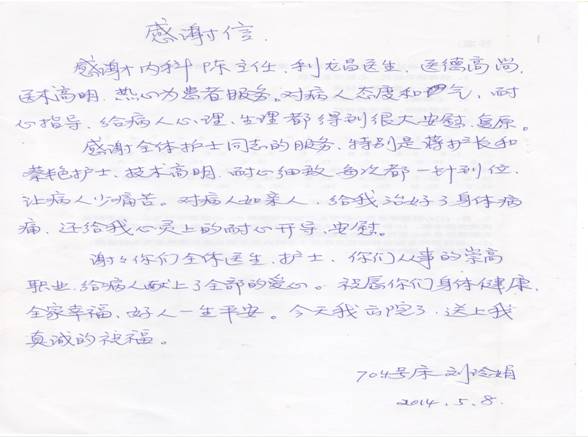 感谢信.
感谢内科陈主任、利龙昌医生,医德高尚,
医术高明,热心为患者服务。对病人态度和气,耐
心指导,给病人心理、生理都得到很大安慰、复原。
感谢全体护士同志的服务,特别是蒋护长和
蔡艳护士,技术高明,耐心细致,每次都一针到位,
让病人少痛苦。对病人如亲人,给我治好了身体病
痛,还给我心灵上的耐心开导、安慰。
谢谢你们全体医生、护士,你们从事的崇高
职业,给病人献上了全部的爱心。祝愿你们身体健康,
全家幸福,好人一生平安。今天我出院了,送上我
真诚的祝福。
704号床 刘玲娟
2014.5.8.